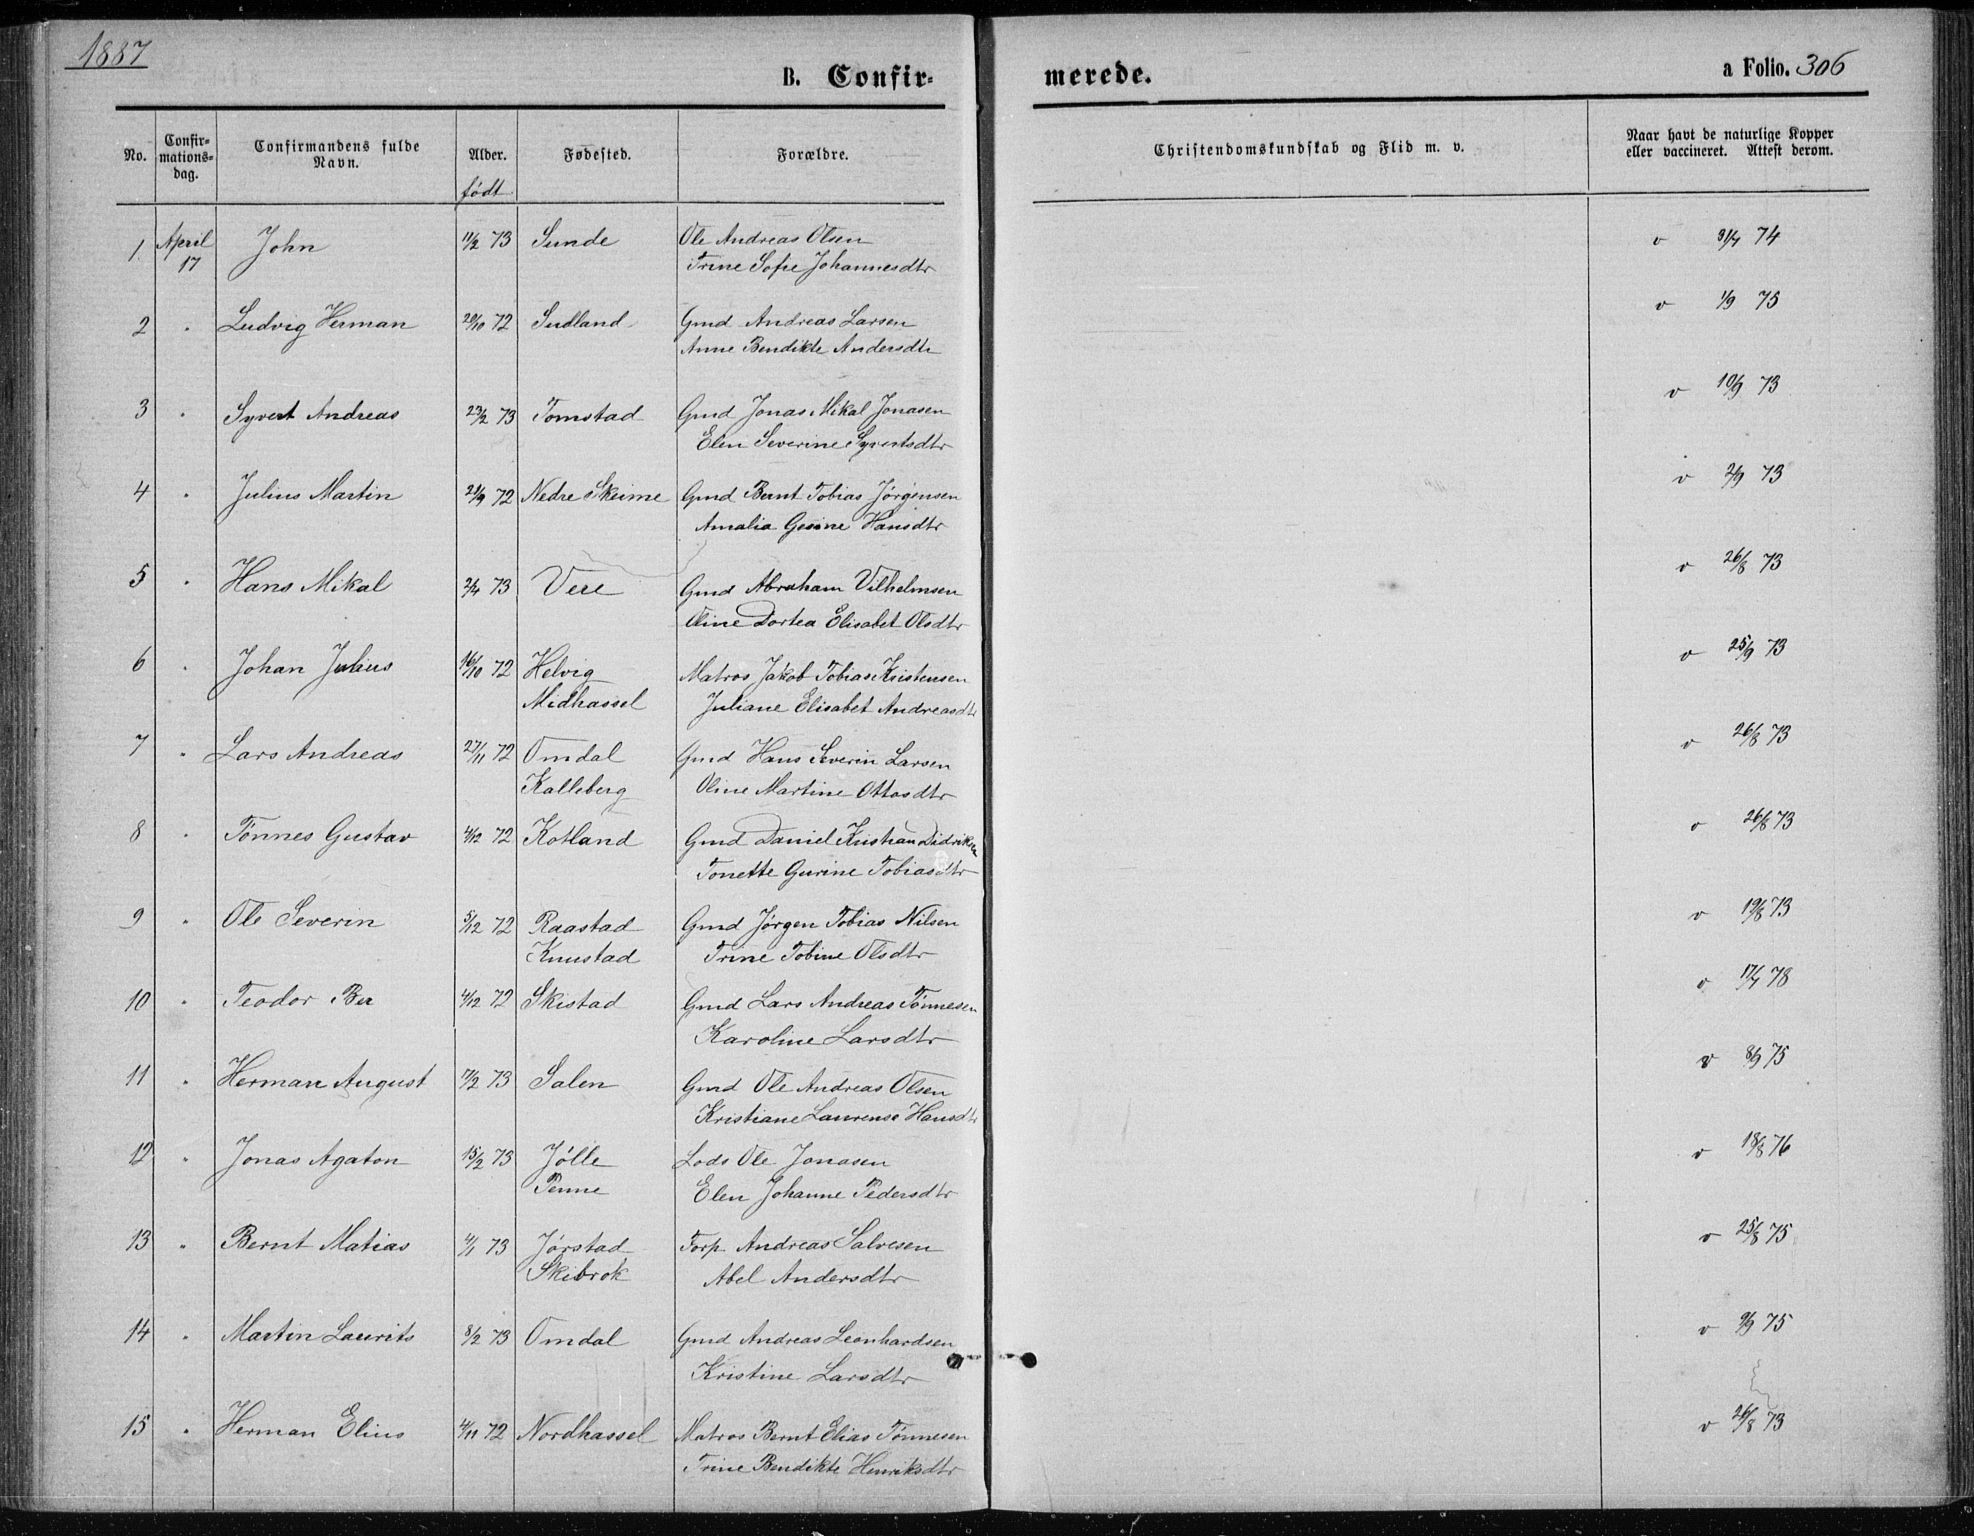 1887
B. Confir-
merede.
a Folio. 306
No.
Confir-
mations-
dag.
Confirmandens fulde
Navn.
Alder.
født
Fødested.
Forældre.
Christendomskundskab og Flid m. v.
Naar havt de naturlige Kopper
eller vaccineret. Attest derom.
1 April John 11/2 73 Sunde Ole Andreas Olsen v 31/7 74
17 Trine Sofie Johannesdtr
2 " Ludvig Herman 20/10 72 Sudland Gmd Andreas Larsen v 1/9 75
Anne Bendikte Andersdtr
3 " Syvert Andreas 23/2 73 Tomstad Gmd Jonas Mikal Jonasen v 10/9 73
Elen Severine Syvertsdtr
4 " Julius Martin 21/9 72 Nedre Skeime Gmd Bernt Tobias Jörgensen v 2/9 73
Amalia Gesine Hansdtr
5 " Hans Mikal 2/4 73 Vere Gmd Abraham Vilhelmsen v 26/8 73
Oline Dortea Elisabet Olsdtr
6 " Johan Julius 16/10 72 Helvig Matros Jakob Tobias Kristensen v 25/9 73
Midhassel Juliane Elisabet Andreasdtr
7 " Lars Andreas 27/11 72 Omdal Gmd Hans Severin Larsen v 26/8 73
Kalleberg Oline Martine Ottosdtr
8 " Tönnes Gustav 4/12 72 Kotland Gmd Daniel Kristian Didriksen v 26/8 73
Tonette Gurine Tobiasdtr
9 " Ole Severin 5/12 72 Raastad Gmd Jörgen Tobias Nilsen v 19/8 73
Knustad Trine Tobine Olsdtr
10 " Teodor Ber 4/12 72 Skistad Gmd Lars Andreas Tönnesen v 17/7 78
Karoline Larsdtr
11 " Herman August 17/2 73 Salen Gmd Ole Andreas Olsen v 8/9 75
Kristiane Laurense Hansdtr
12 " Jonas Agaton 15/2 73 Jölle Lods Ole Jonasen v 18/8 76
Penne Elen Johanne Pedersdtr
13 " Bernt Matias 4/1 73 Jörstad Forp. Andreas Salvesen v 25/8 75
Skibrok Abel Andersdtr
14 " Martin Laurits 8/2 73 Omdal Gmd Andreas Leonhardsen v 9/9 75
Kristine Larsdtr
15 " Herman Elius 4/11 72 Nordhassel Matros Bernt Elias Tönnesen v 26/8 73
Trine Bendikte Henriksdtr